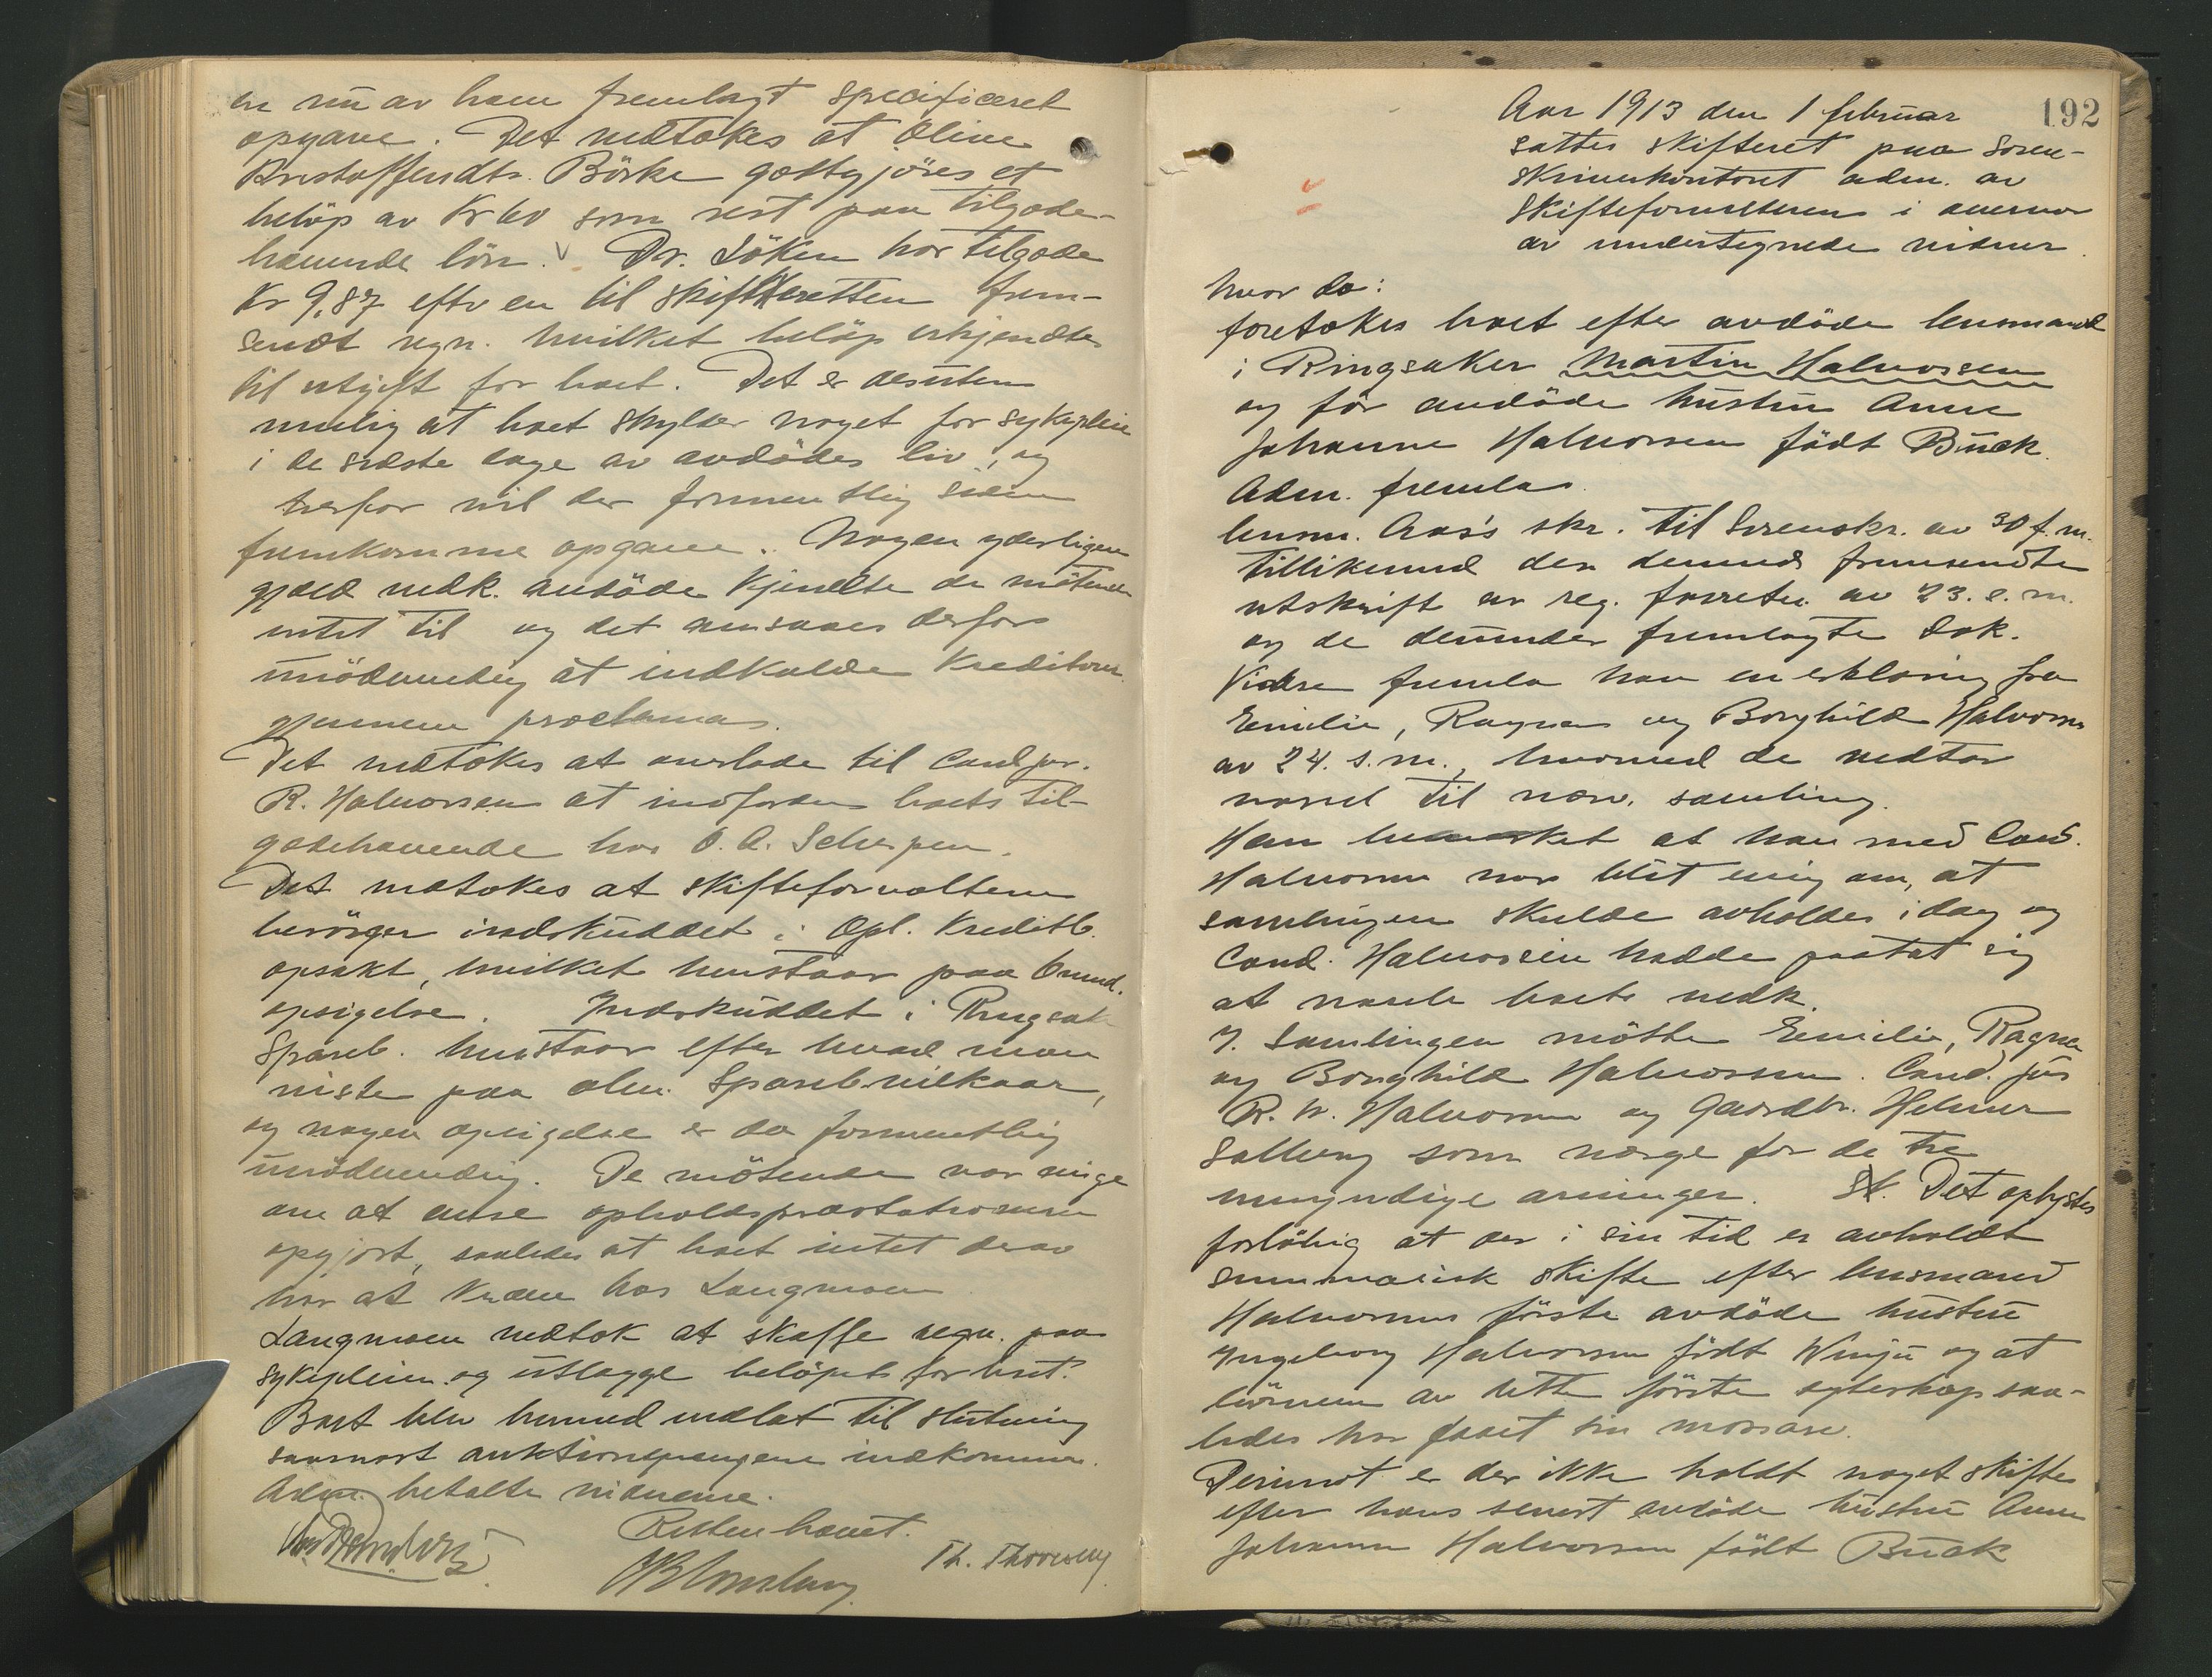 en nu av ham fremlagt specificeret
opgave. Det vedtokes at Oline
Kristoffersdtr. Börke godtgjöres et
belöp av Kr 60 som rest paa tilgode-
havende lön. Dr. Löken har tilgode
Kr 9,87 efter en til skifteretten frem-
sendt regn. hvilket belöp erkjendtes
til utgift for boet. Det er desuten
mulig at boet skylder noget for sykepleie
i de sidste dage av avdödes liv, og
herfor vil der formentlig siden
fremkomme opgave. Nogen yderligere
gjæld vedk. avdöde kjendte de mötende
intet til og det ansaaes derfor
unödvendig at indkalde kreditorer
gjennem proclama.
Det vedtokes at overlade til Cand jur.
R. Halvorsen at indfordre boets til-
godehavende hos O. A. Schjerpen.
Det vedtokes at skifteforvalteren
besörger indskuddet i Opl. Kreditb.
opsakt, hvilket henstaar paa 6 mnd.
opsigelse. Indskuddet i Ringsak
Spareb. henstaar efter hvad man
visste paa alm. Spareb.vilkaar,
og nogen opsigelse er da formentlig
unödvendig. De mötende var enige
om at anse opholdspræstationerne
opgjort, saaledes at boet intet derav
har at kræve hos Langmoen
Langmoen vedtok at skaffe regn. paa
sykepleien og utlægge belöpet for boet.
Boet blev hermed utlat til slutning
saasnart auktionspengene indkommer.
Adm. betalte vidnerne.
Retten hævet.
Th. Thoresen

192
Aar 1913 den 1 februar
sattes skifteret paa Soren-
skriverkontoret adm. av
skifteforvalteren i overvær
av undertegnede vidner.
hvor da:
foretokes boet efter avdöde lensmand
i Ringsaker Martin Halvorsen
og för avdöde hustru Anne
Johanne Halvorsen födt Buck.
Adm. fremla
lensm. Aas's skr. til Sorenskr. av 30 f. m.
tillikemed den dermed fremsendte
utskrift av reg. forretn. av 23. s. m.
og de derunder fremlagte dok.
Videre fremla han en erklæring fra
Emilie, Ragna og Borghild Halvorsen
av 24. s. m., hvorved de vedtar
varsel til nærv. samling.
Han bemerket at han med Cand.
Halvorsen var blit enig om, at
samlingen skulde avholdes idag og
Cand. Halvorsen hadde paatat sig
at varsle boets vedk.
I. Samlingen mötte Emilie, Ragna
og Borghild Halvorsen. Cand. jur
R. W. Halvorsen og gaardbr. Helmer
Salberg som værge for de tre
umyndige arvinger. St. Det oplystes
forlöbig at der i sin tid er avholdt
summarisk skifte efter lensmand
Halvorsens förste avdöde hustru
Ingeborg Halvorsen födt Winju og at
börnene av dette förste egteskap saa-
ledes har faaet sin morsarv.
Derimot er der ikke holdt noget skifte
efter hans senest avdöde hustru Anne
Johanne Halvorsen födt Buck